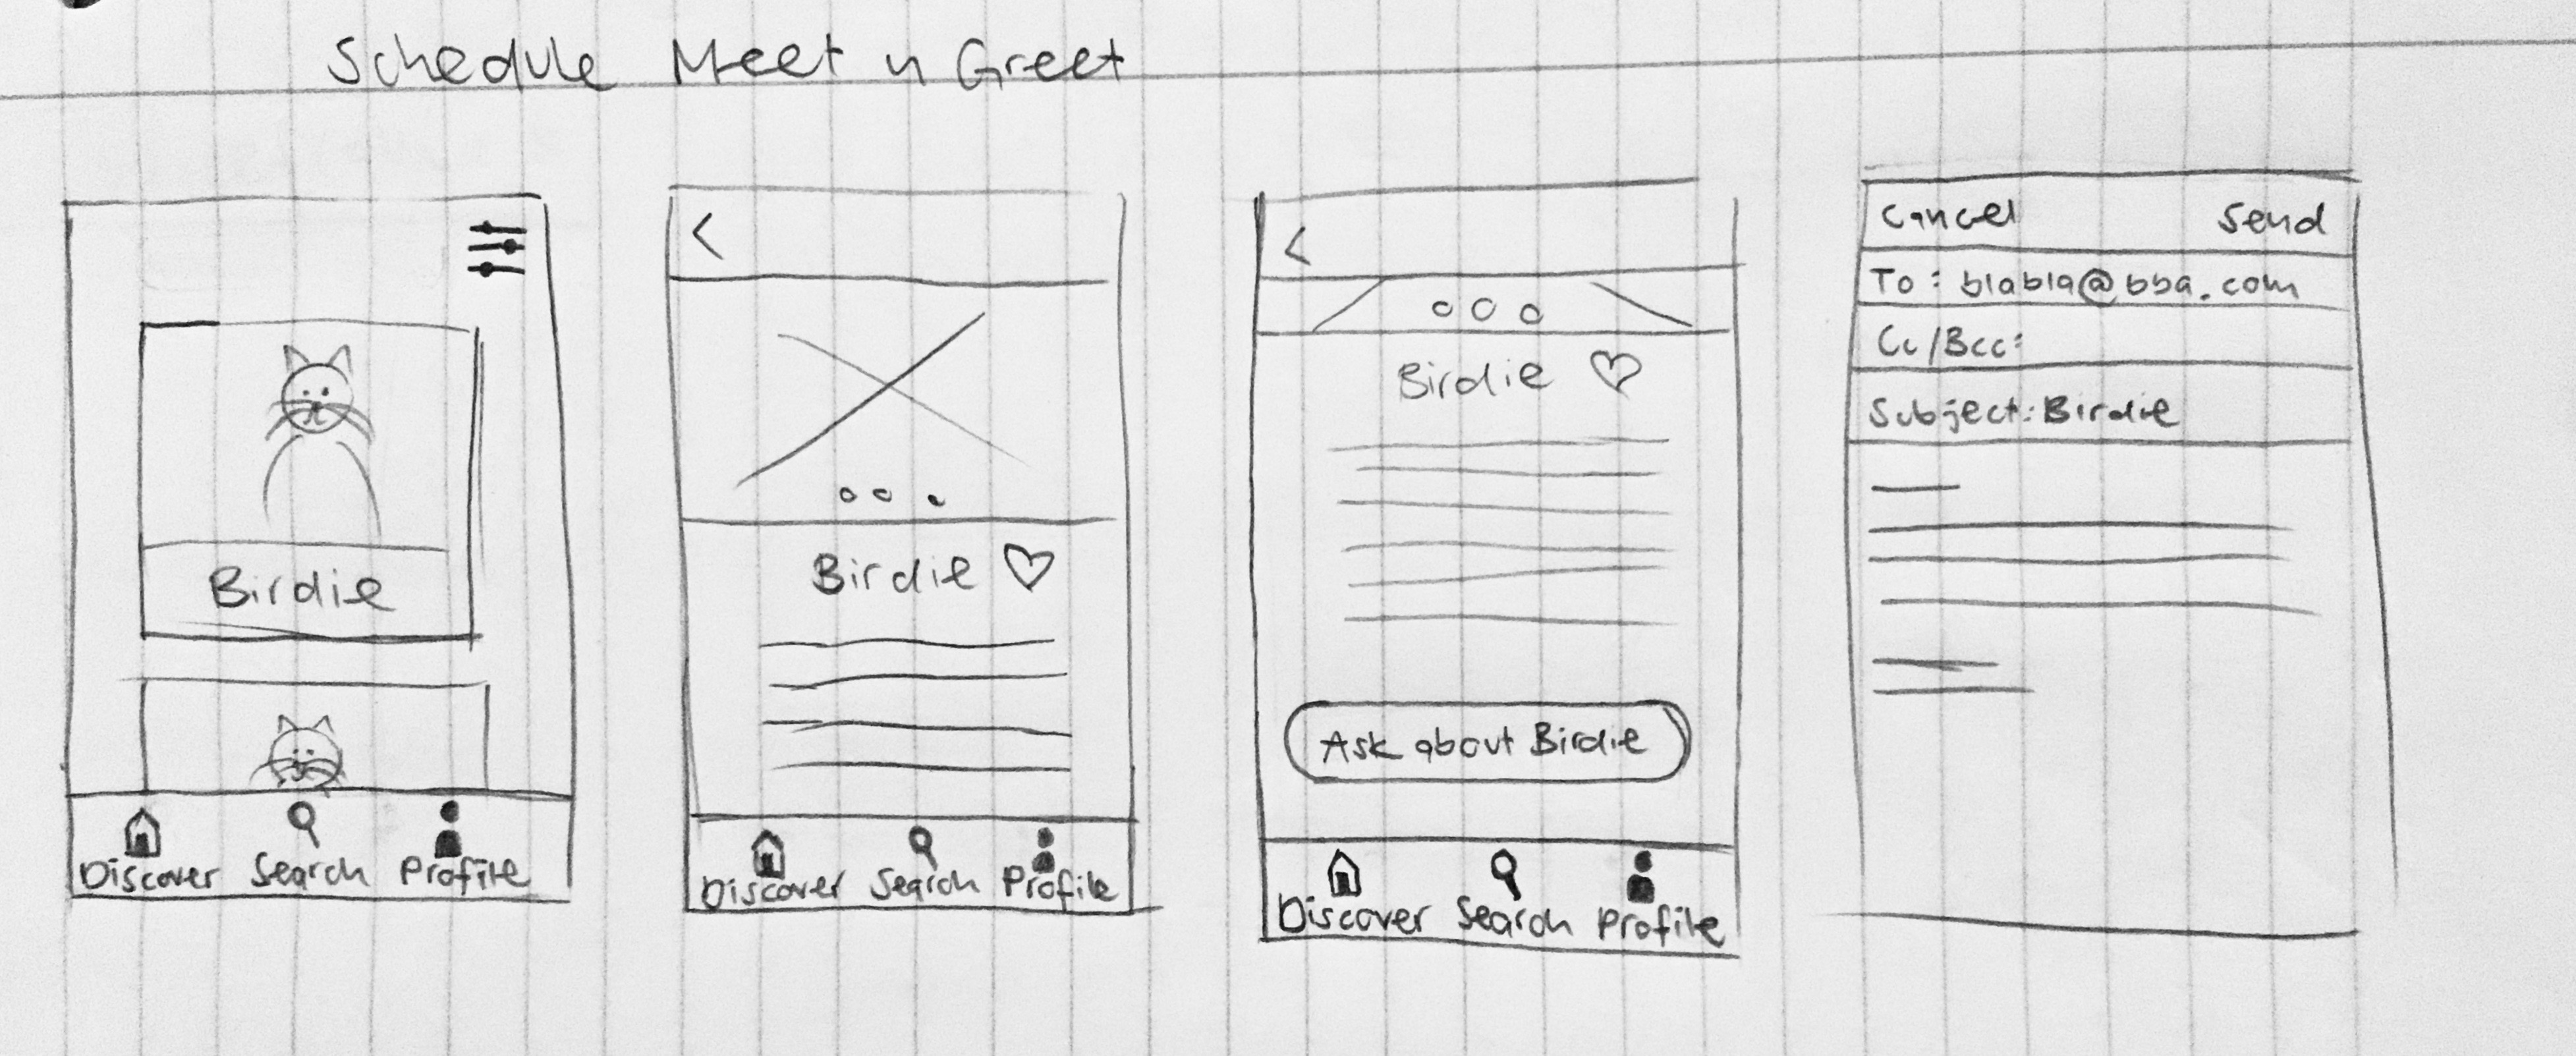 Schedule Meet n Greet
Birdie
Discover Search Profile
Birdie
Discover Search Profile
Birdie
Ask about Birdie
Discover Search Profile
Cancel Send
To: blabla@bba.com
Cc/Bcc:
Subject: Birdie